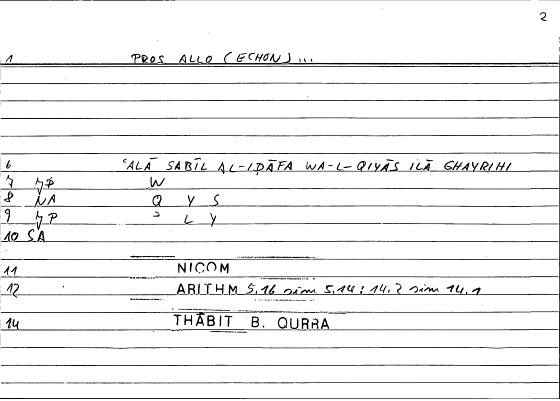 2
1 PROS ALLO (ECHON)...
6 ʿALĀ SABĪL AL-IḌĀFA WA-L-QIYĀS ILĀ GHAYRIHI
7 W
8 NA Q Y S
9 ʾ L Y
10 SA
11 NICOM
12 ARITHM 5,16 sim 5,14; 14,2 sim 14,1
14 THĀBIT B. QURRA